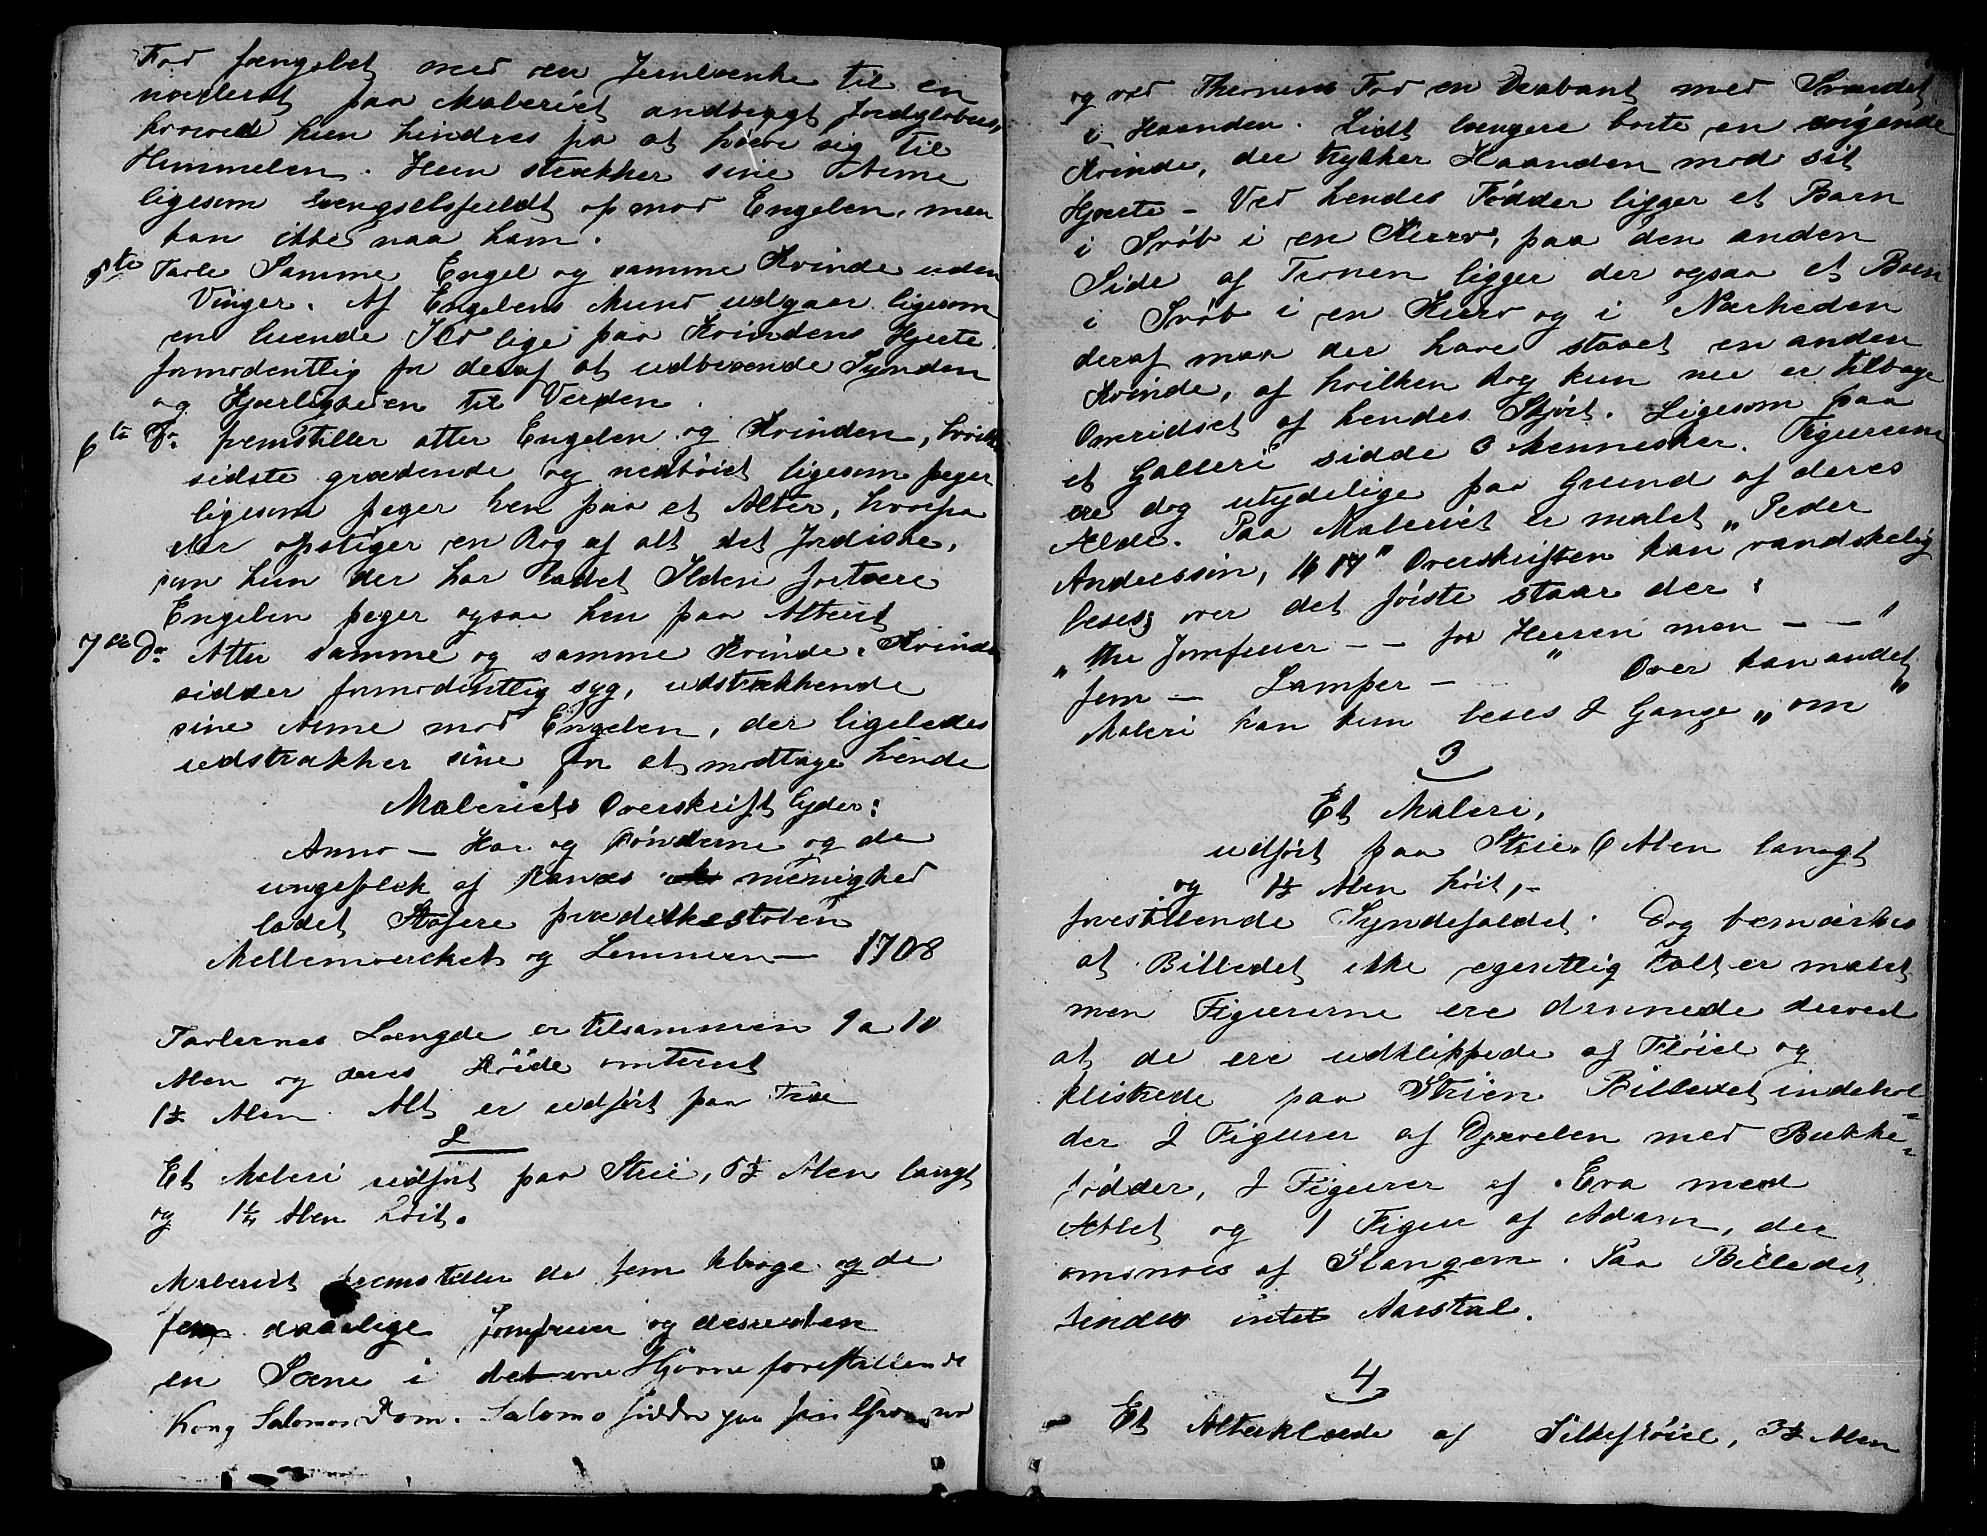 Fod fængslet med en Jernlænke til en
nederst paa Maleriet andbragt Jordglobus,
hvorved hun hindres fra at hæve sig til
Himmelen. Hun strækker sine Arme
ligesom længselsfuldt op mod Engelen, men
kan ikke naa ham.
5te Tavle Samme Engel og samme Kvinde uden
Vinger. Af Engelens Mund udgaar ligesom
en luende Ild lige paa Kvindens Hjerte
formodentlig for deraf at udbrænde Synden
og Kjærligheden til Verden.
6te Do. fremstiller atter Engelen og Kvinden, hvilken
sidste grædende og nedbøiet ligesom peger
ligesom peger hen paa et Alter, hvorfra
der opstiger en Røg af alt det Jordiske,
som hun der har ladet Ilden fortære
Engelen peger ogsaa hen paa Alteret
7de Do. Atter samme og samme Kvinde. Kvinden
sidder formodentlig syg, udstrækkende
sine Arme mod Engelen, der ligeledes
udstrækker sine for at modtage hende
Maleriets Overskrift lyder:
Anno — Har og Bønderne og de
ungefolck af Ranæs menighed
ladet Stafere prædikestolen
Mellemværcket og Lemmeren — 1708
Tavlernes Længde er tilsammen 9 a 10
Alen og deres Høide omtrent
1½ Alen. Alt er udført paa Træ
2
Et Maleri udført paa Strie, 5½ Alen langt
og 1¼ Alen høit.
Maleriet fremstiller de fem kloge og de
fem daarlige Jomfruer og desuden
en Scene i det ene Hjørne forestillende
Kong Salomos Dom. Salomo sidder paa sin Throne
og ved Thronens Fod en Drabant med Sværdet
i Haanden. Lidt længere borte en vigende
Kvinde, der trykker Haanden mod sit
Hjerte — Ved hendes Fødder ligger et Barn
i Svøb i en Kurv, paa den anden
Side af Tronen ligger der ogsaa et Barn
i Svøb i en Kurv og i Nærheden
deraf maa der have staaet en anden
Kvinde, af hvilken dog kun nu er tilbage
Omridset af hendes Skjørt. Ligesom paa
et Galleri sidde 3 Mennesker. Figurerne
ere dog utydelige paa Grund af deres
Ælde. Paa Maleriet er malet „Peder
Anderssøn, 1617" Overskriften kan vandskelig
læses; over det første staar der:
„the Jomfruer — — for Herren men — — "
fem — Lamper — " Over kan andet
Maleri kan kun læses 2 Gange „om "
3
Et Maleri,
udført paa Strie, 6 Alen langt
og 1½ Alen høit, —
forestillende Syndefaldet. Dog bemærkes
at Billedet ikke egentlig talt er malet
men Figurerne ere dannede derved
at de ere udklippede af Fløiel og
klistrede paa Strien Billedet indehol-
der 2 Figurer af Djævelen med Bukke-
fødder, 2 Figurer af Eva med
Æblet og 1 Figur af Adam, der
omsnoes af Slangen. Paa Billedet
findes intet Aarstal.
4
Et Alterklæde af Silkefløiel, 3½ Alen